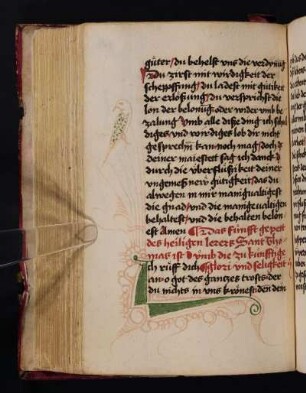 güter / du behelst vns die verdynug
du zirst mit wirdigkeit der
scheppffung / du ladest mit gütikeit
der erlosung / du versprichst die
lon der belonug oder wider vmb be
zalung / vnd alle dise ding ich schul
diges vnd wirdiges lob dir nicht
gesprechen kan noch mag / doch
deiner maiestet sag ich danck
durch die überflusikeit deiner
vngemessen gutigkeit / das du
alwegen in mir manigualtigest
die gnad / vnd die manigeualtigen
behaltest / vnd die behalten belon
est Amen Das fünfft gepeit
des heiligen lerers Sant tho
mas ist vmb die zukunfftige
glori vnd seligkeit
Ich rüff dich
an o got des gantzes trosts / der
du nichts in vns kronest den dein